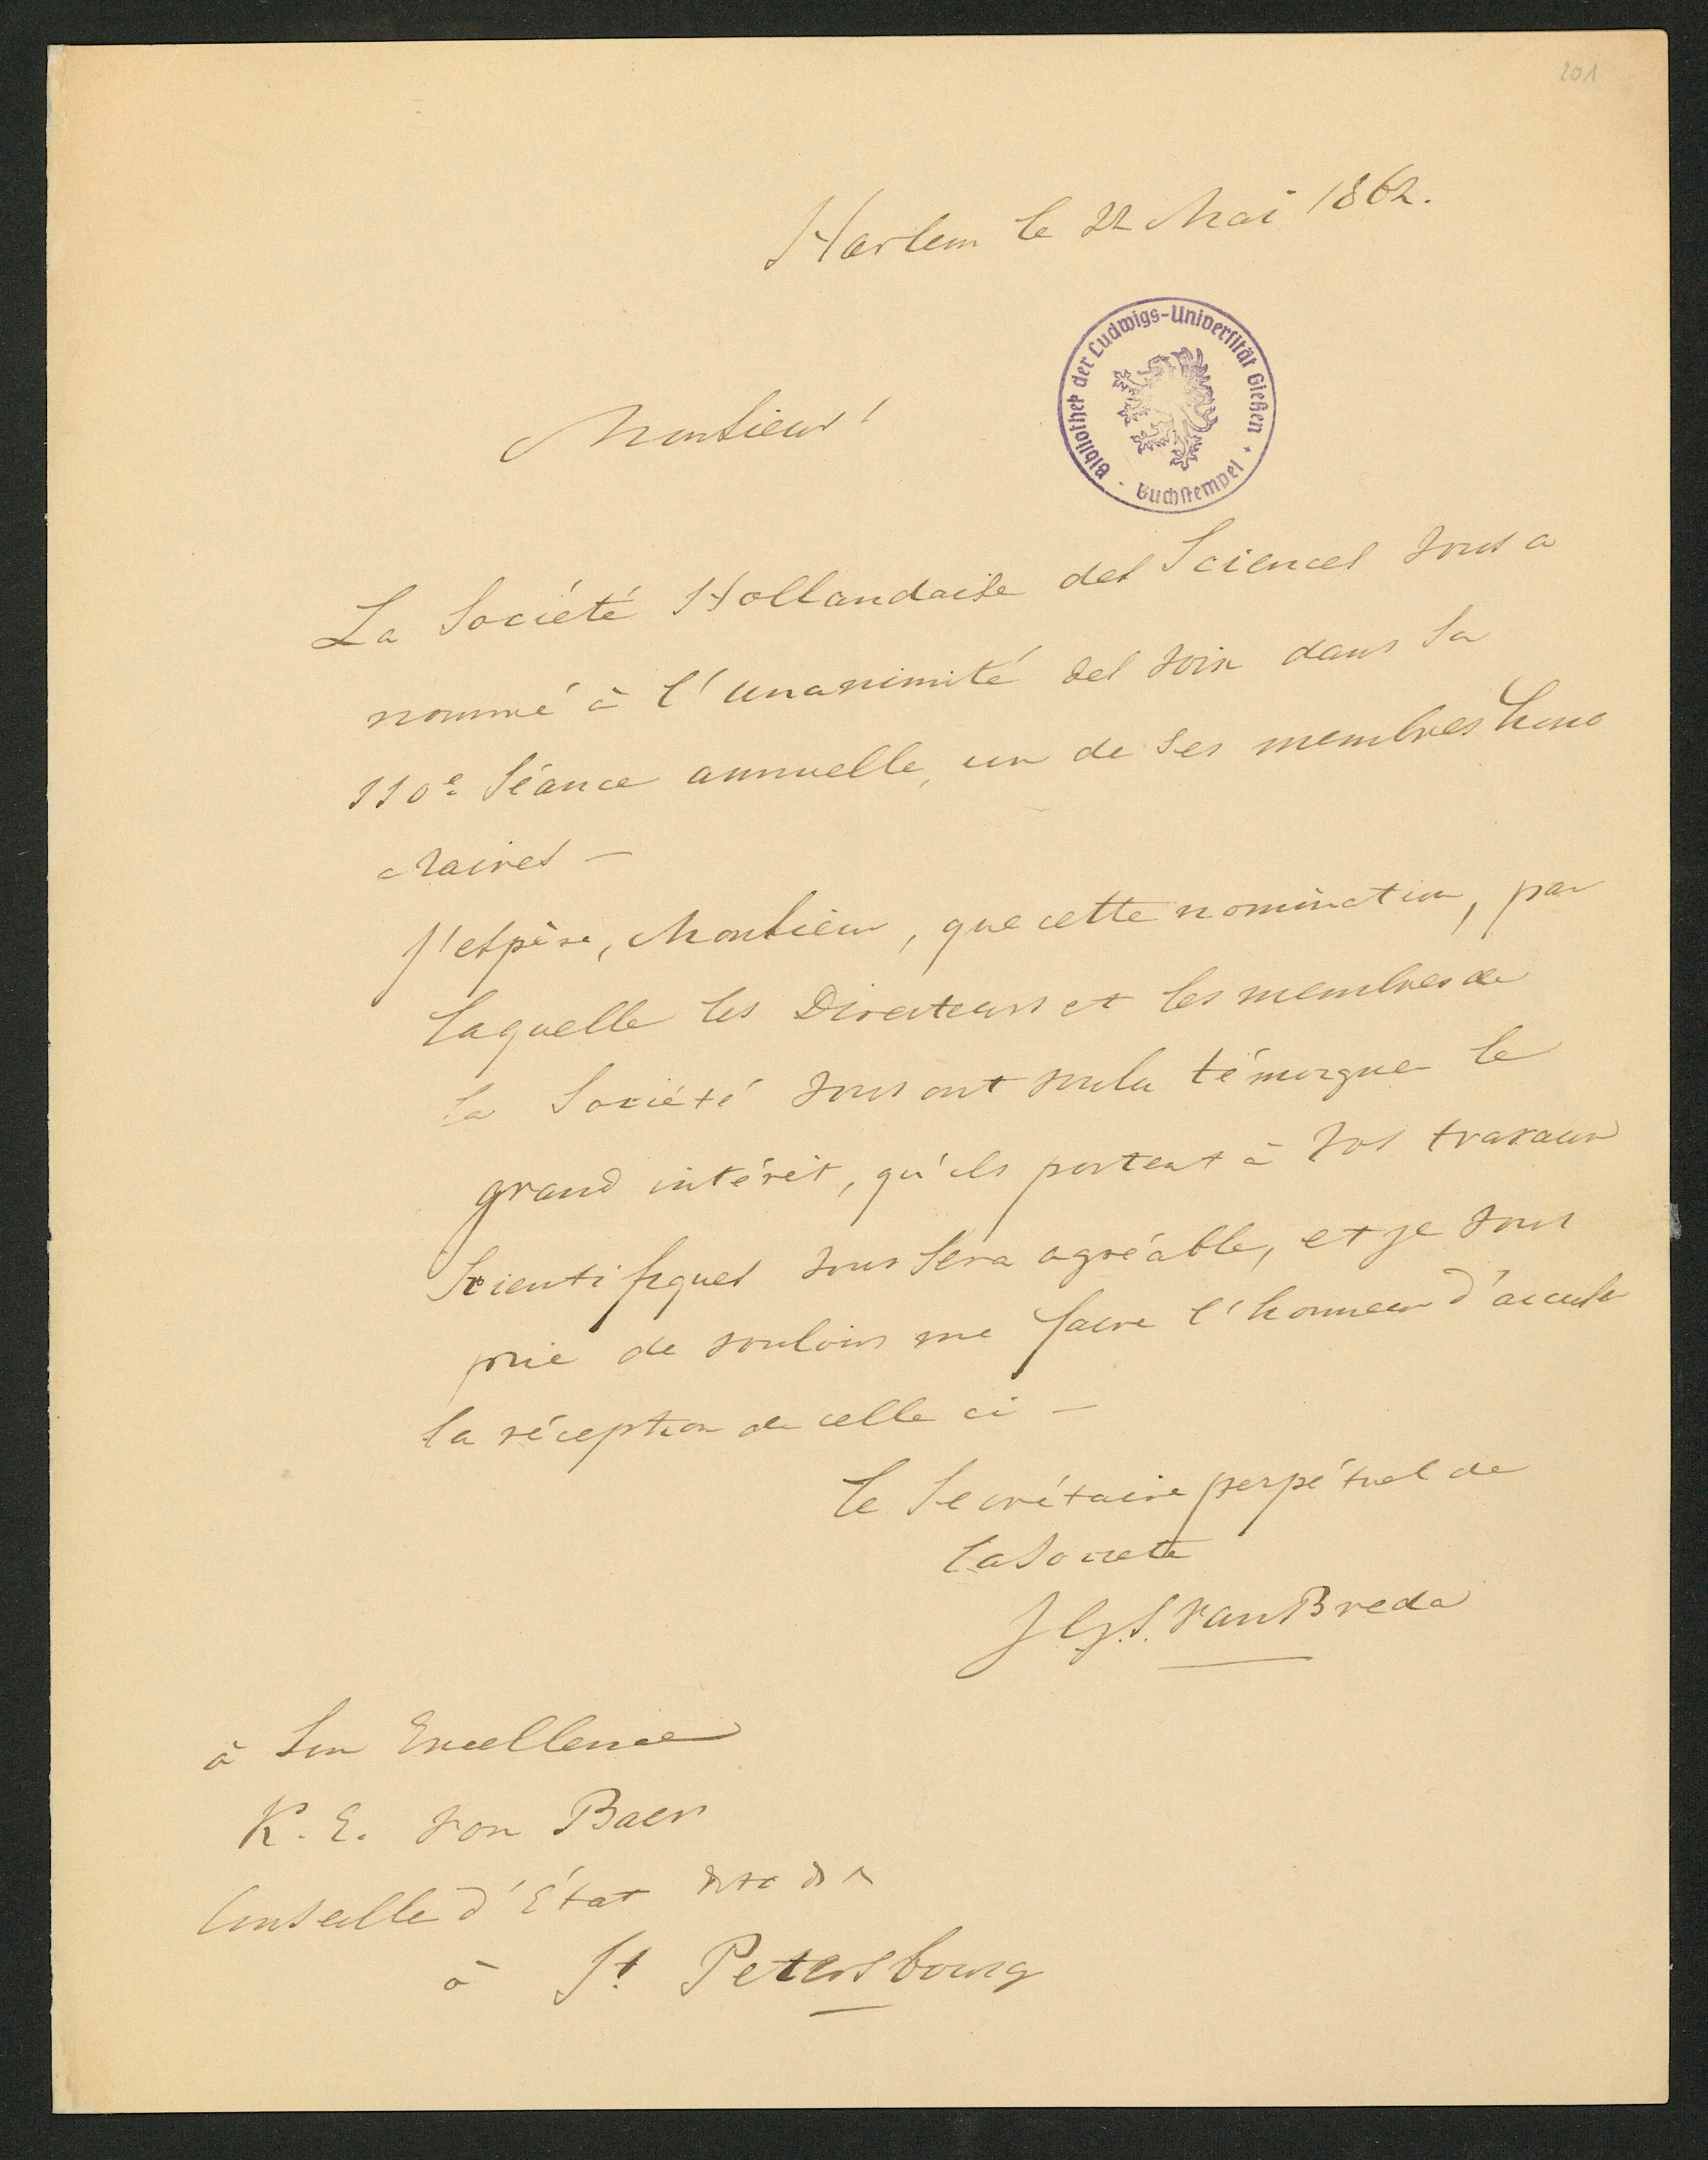 201
Harlem le 22 Mai 1862.
Bibliothek der Ludwigs-Universität Gießen
Buchstempel
Monsieur!
La Société Hollandaise des Sciences vous a
nommé à l'unanimité des voix dans sa
110e Séance annuelle, un de ses membres hono
raires —
J'espère, Monsieur, que cette nomination, par
laquelle les Directeurs et les membres de
la Société vous ont voulu témoigner le
grand intérêt, qu'ils portent à vos travaux
Scientifiques vous sera agréable, et je vous
prie de vouloir me faire l'honneur d'accuser
la réception de celle ci —
Le Secrétaire perpétuel de
la Societe
J.G.S. van Breda
à Son Excellence
K. E. von Baer
Conseille d'État
à St Petersbourg